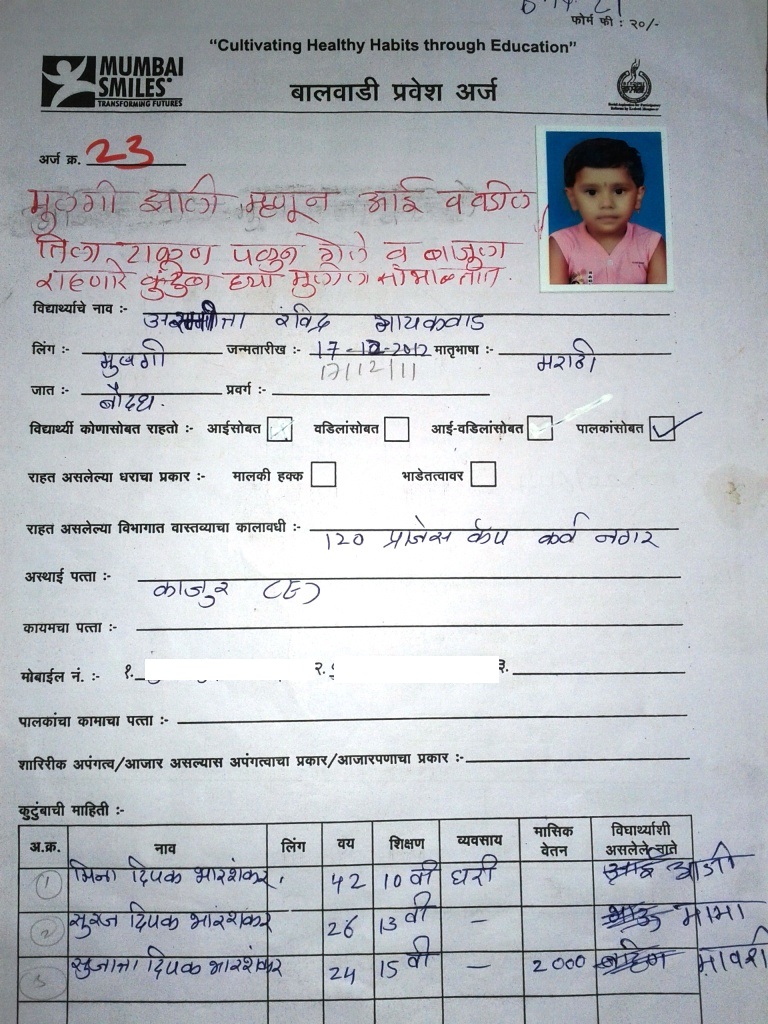 फोर्म फी : २०/-
“Cultivating Healthy Habits through Education”
MUMBAI
SMILES
TRANSFORMING FUTURES
बालवाडी प्रवेश अर्ज
अर्ज क्र. 23
मुलगी झाली म्हणून आई व वडील
तिला टाकून पळून गेले व बाजूला
राहणारे कुटुंब ह्या मुलीला सांभाळतात.
विद्यार्थ्याचे नाव :- रविंद्र गायकवाड
लिंग :- मुलगी जन्मतारीख :- 17-12-2012 मातृभाषा :- मराठी
17/12/11
जात :- बौद्ध. प्रवर्ग :-
विद्यार्थी कोणासोबत राहतो :- आईसोबत वडिलांसोबत आई-वडिलांसोबत पालकांसोबत
राहत असलेल्या घराचा प्रकार :- मालकी हक्क भाडेतत्वावर
राहत असलेल्या विभागात वास्तव्याचा कालावधी :- 120 कर्वे नगर
अस्थाई पत्ता :- काजुर (E)
कायमचा पत्ता :-
मोबाईल नं. :- १. २. ३.
पालकांचा कामाचा पत्ता :-
शारिरीक अपंगत्व/आजार असल्यास अपंगत्वाचा प्रकार/आजारपणाचा प्रकार :-
कुटुंबाची माहिती :-
अ.क्र. नाव लिंग वय शिक्षण व्यवसाय मासिक वेतन विद्यार्थ्याशी असलेले नाते
1 मिना दिपक भारशंकर 42 10 वी घरी आजी
2 सुरज दिपक भारशंकर 26 13 वी - मामा
3 सुजाता दिपक भारशंकर 24 15 वी - 2000 मावशी